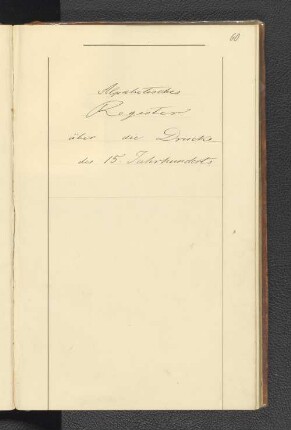 60
Alphabetisches
Register
über die Drucke
des 15. Jahrhunderts